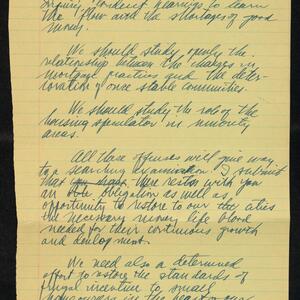 inquiry. Hearings to learn
the flow and the shortages of good
money.
We should study openly the
relationship between the changes in
mortgage practices and the deter-
ioration of once stable communities.
We should study the role of the
housing speculator in minority
areas.
All these offenses will give way
to a searching examination. I submit
that there rests with you
an obligation as well as
opportunity to restore to our the cities
the necessary money life blood
needed for their continuous growth
and development.
We need also a determined
effort to restore the standards of
frugal incentive to small
homeowners in the